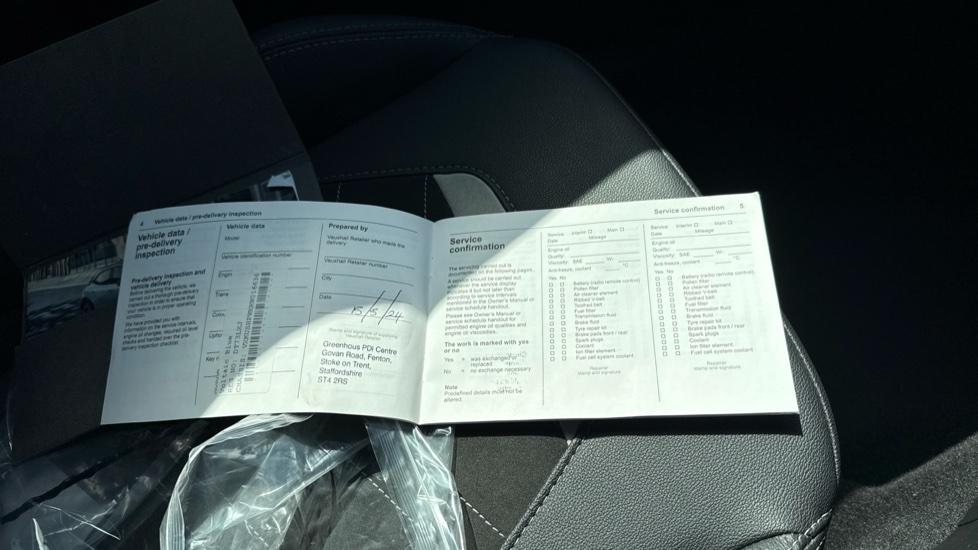 4 Vehicle data / pre-delivery inspection
Vehicle data /
pre-delivery
inspection
Pre-delivery inspection and
vehicle delivery
Before delivering the vehicle, we
carried out a thorough pre-delivery
inspection in order to ensure that
your vehicle is in proper operating
condition.
We have provided you with
information on the service intervals,
Vehicle data
Model
Vehicle identification number
Engin
Trans
Colou
Upho
Key
Prepared by
Vauxhall Retailer who made the
delivery
Vauxhall Retailer number
City
Date
15/5/24
Stamp and signature of supplying
Vauxhall Retailer
Greenhous PDI Centre
Govan Road, Fenton,
Stoke on Trent,
Staffordshire
ST4 2RS
Service confirmation 5
Service
confirmation
The servicing carried out is
documented on the following pages.
A service should be carried out
whenever the service display
indicates it but not later than
according to service intervals
mentioned in the Owner's Manual or
service schedule handout.
Please see Owner's Manual or
service schedule handout for
permitted engine oil qualities and
engine oil viscosities.
The work is marked with yes
or no
Yes = was exchanged or
replaced
No = no exchange necessary
Note
Predefined details must not be
altered.
Service Interim Main
Date Mileage
Engine oil
Quality:
Viscosity: SAE W-
Anti-freeze, coolant °C
Yes No
Battery (radio remote control)
Pollen filter
Air cleaner element
Ribbed V-belt
Toothed belt
Fuel filter
Transmission fluid
Brake fluid
Tyre repair kit
Brake pads front / rear
Spark plugs
Coolant
Ion filter element
Fuel cell system coolant
Repairer
stamp and signature
Service Interim Main
Date Mileage
Engine oil
Quality:
Viscosity: SAE W-
Anti-freeze, coolant °C
Yes No
Battery (radio remote control)
Pollen filter
Air cleaner element
Ribbed V-belt
Toothed belt
Fuel filter
Transmission fluid
Brake fluid
Tyre repair kit
Brake pads front / rear
Spark plugs
Coolant
Ion filter element
Fuel cell system coolant
Repairer
stamp and signature